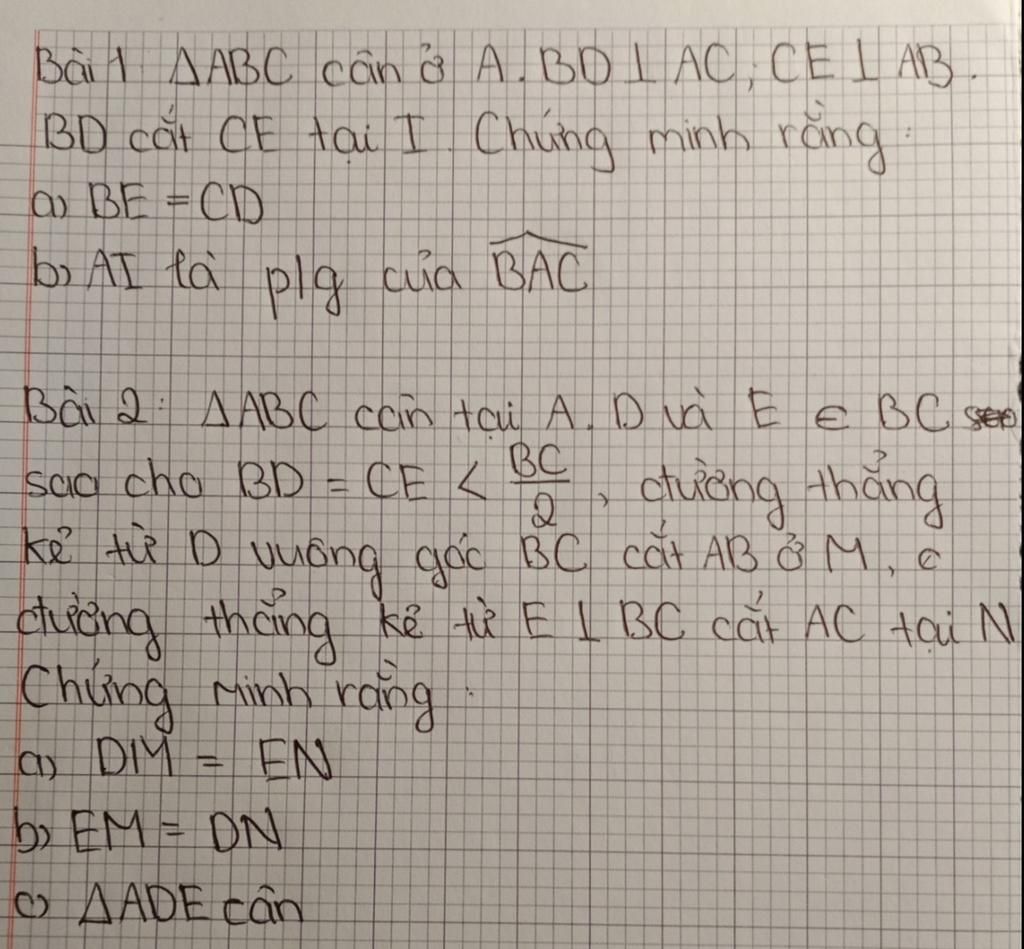 Bài 1 ΔABC cân ở A. BD ⊥ AC, CE ⊥ AB.
BD cắt CE tại I. Chứng minh rằng:
a) BE = CD
b) AI là p/g của \widehat{BAC}
Bài 2: ΔABC cân tại A. D và E ∈ BC
sao cho BD = CE < \frac{BC}{2}, đường thẳng
kẻ từ D vuông góc BC cắt AB ở M, c
đường thẳng kẻ từ E ⊥ BC cắt AC tại N
Chứng minh rằng:
a) DM = EN
b) EM = DN
c) ΔADE cân